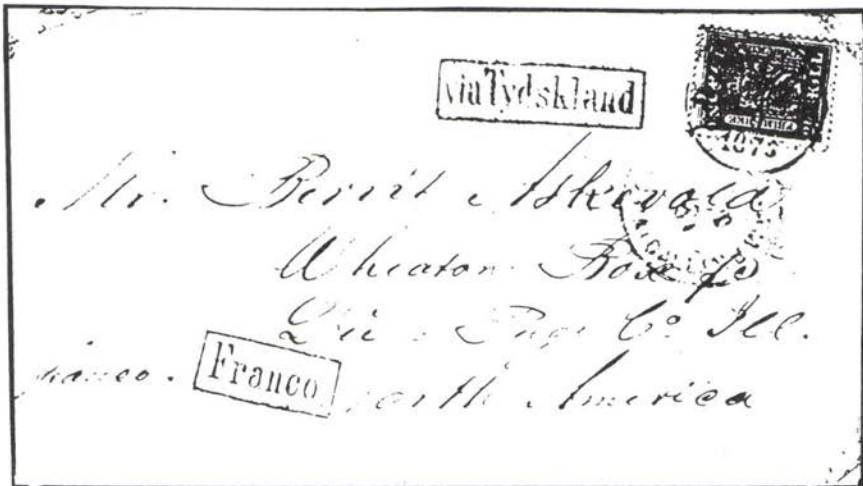 via Tydskland
1875
Mr. Berrit Askevold
Wheaton Box
Du Page Co. Ill.
franco. Franco North America